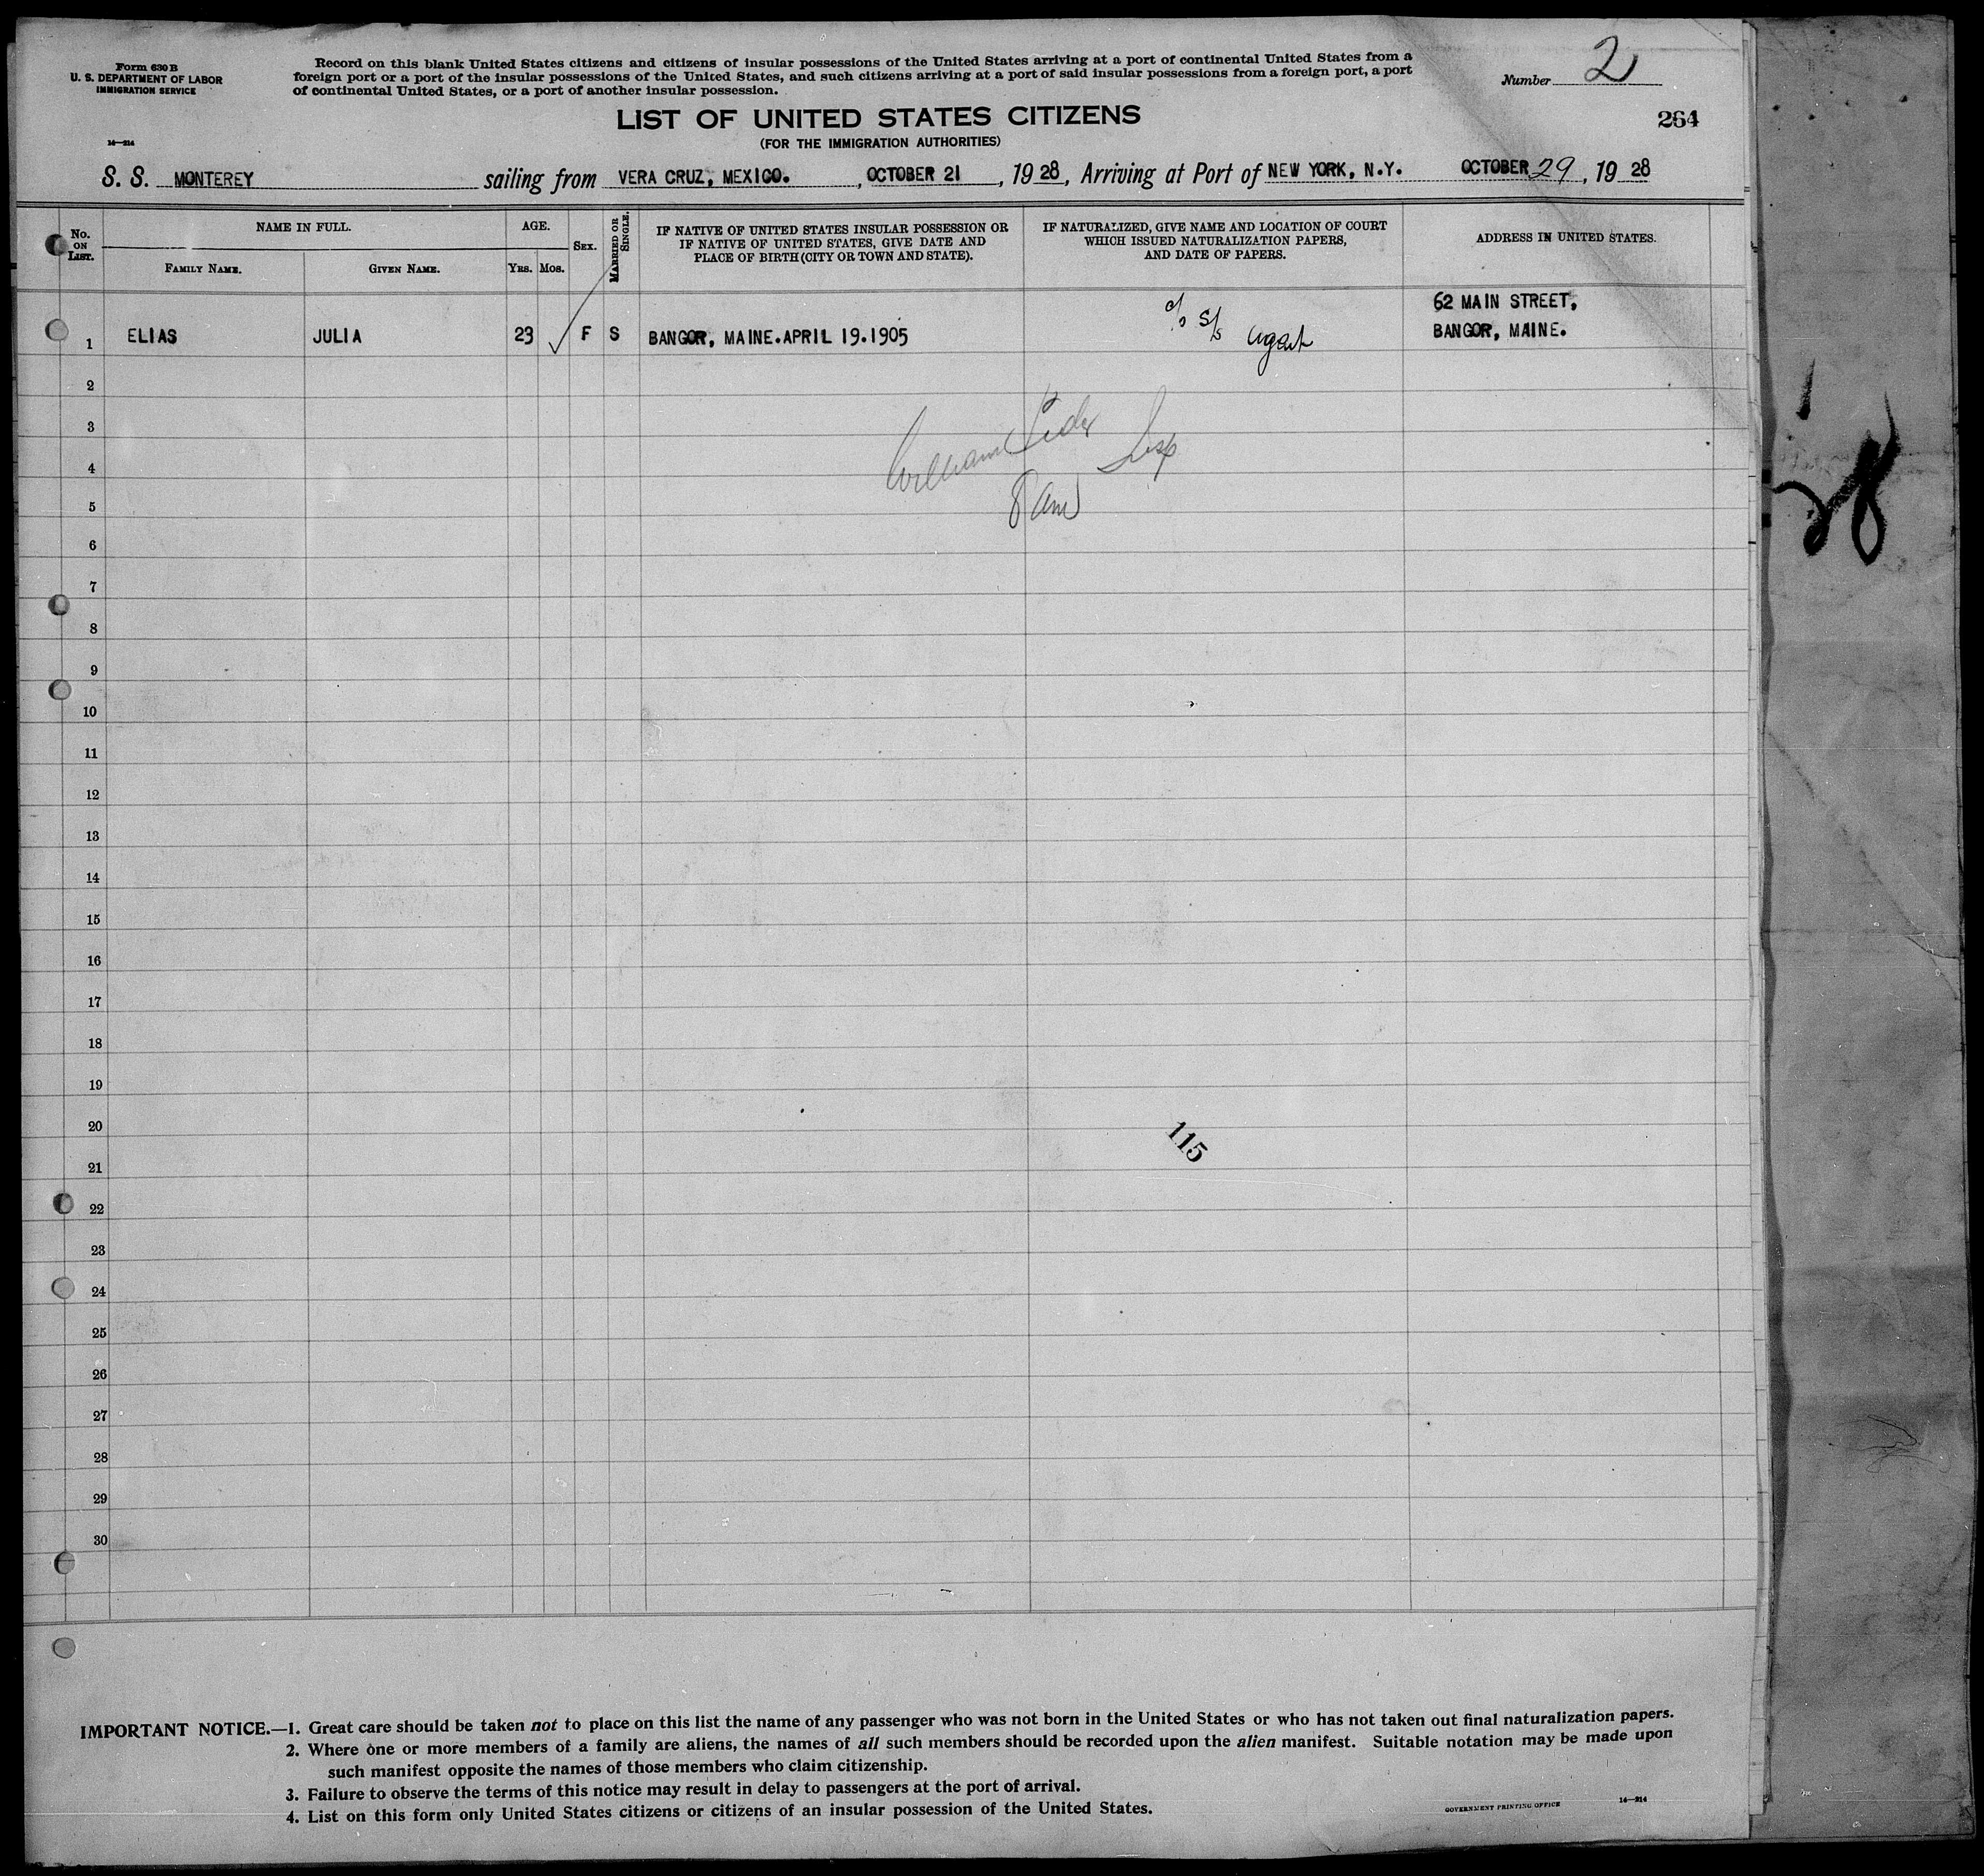 Form 630 B
U. S. DEPARTMENT OF LABOR
IMMIGRATION SERVICE
14—214
Record on this blank United States citizens and citizens of insular possessions of the United States arriving at a port of continental United States from a
foreign port or a port of the insular possessions of the United States, and such citizens arriving at a port of said insular possessions from a foreign port, a port
of continental United States, or a port of another insular possession.
Number 2
264
LIST OF UNITED STATES CITIZENS
(FOR THE IMMIGRATION AUTHORITIES)
S. S. MONTEREY sailing from VERA CRUZ, MEXICO. , OCTOBER 21 , 19 28, Arriving at Port of NEW YORK, N.Y. OCTOBER 29, 19 28
No. ON LIST.
NAME IN FULL.
FAMILY NAME.
GIVEN NAME.
AGE.
YRS.
MOS.
SEX.
MARRIED OR SINGLE.
IF NATIVE OF UNITED STATES INSULAR POSSESSION OR
IF NATIVE OF UNITED STATES, GIVE DATE AND
PLACE OF BIRTH (CITY OR TOWN AND STATE).
IF NATURALIZED, GIVE NAME AND LOCATION OF COURT
WHICH ISSUED NATURALIZATION PAPERS,
AND DATE OF PAPERS.
ADDRESS IN UNITED STATES.
1 ELIAS JULIA 23 F S BANGOR, MAINE.APRIL 19.1905
62 MAIN STREET,
BANGOR, MAINE.
2
3
William
4
5
6
7
8
9
10
11
12
13
14
15
16
17
18
19
20
115
21
22
23
24
25
26
27
28
29
30
28
IMPORTANT NOTICE.—1. Great care should be taken not to place on this list the name of any passenger who was not born in the United States or who has not taken out final naturalization papers.
2. Where one or more members of a family are aliens, the names of all such members should be recorded upon the alien manifest. Suitable notation may be made upon
such manifest opposite the names of those members who claim citizenship.
3. Failure to observe the terms of this notice may result in delay to passengers at the port of arrival.
4. List on this form only United States citizens or citizens of an insular possession of the United States.
GOVERNMENT PRINTING OFFICE
14—214